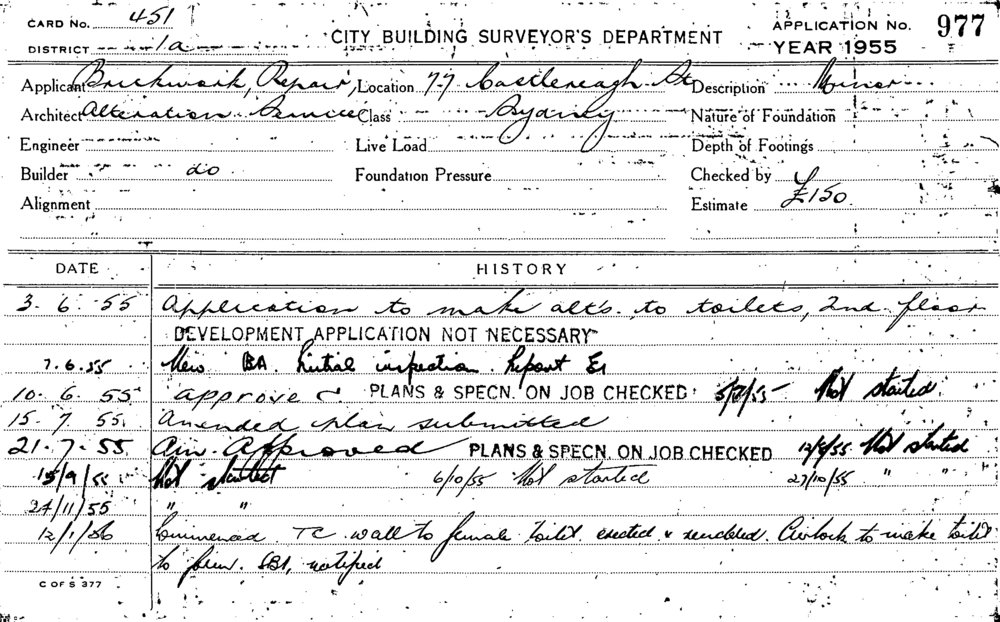 CARD No. 451
DISTRICT 1a
CITY BUILDING SURVEYOR'S DEPARTMENT
APPLICATION No. 977
YEAR 1955
Applicant Brickwork, Repair, Location 77 Castlereagh St Description Minor
Architect Alteration Service Class Sydney Nature of Foundation
Engineer Live Load Depth of Footings
Builder do Foundation Pressure Checked by
Alignment Estimate £150
DATE HISTORY
3. 6. 55 Application to make alts. to toilets, 2nd floor
DEVELOPMENT APPLICATION NOT NECESSARY
7.6.55 New BA. Initial inspection. Report
10. 6. 55 approve PLANS & SPECN. ON JOB CHECKED Not started
15. 7. 55. Amended plan submitted
21. 7. 55 Am. Approved PLANS & SPECN. ON JOB CHECKED Not started
15/9/55 Not started 6/10/55 Not started 27/10/55 " "
24/11/55 " "
12/1/56 Commenced. TC wall to female toilet erected & rendered. Airlock to make toilet
to notified
C OF S 377